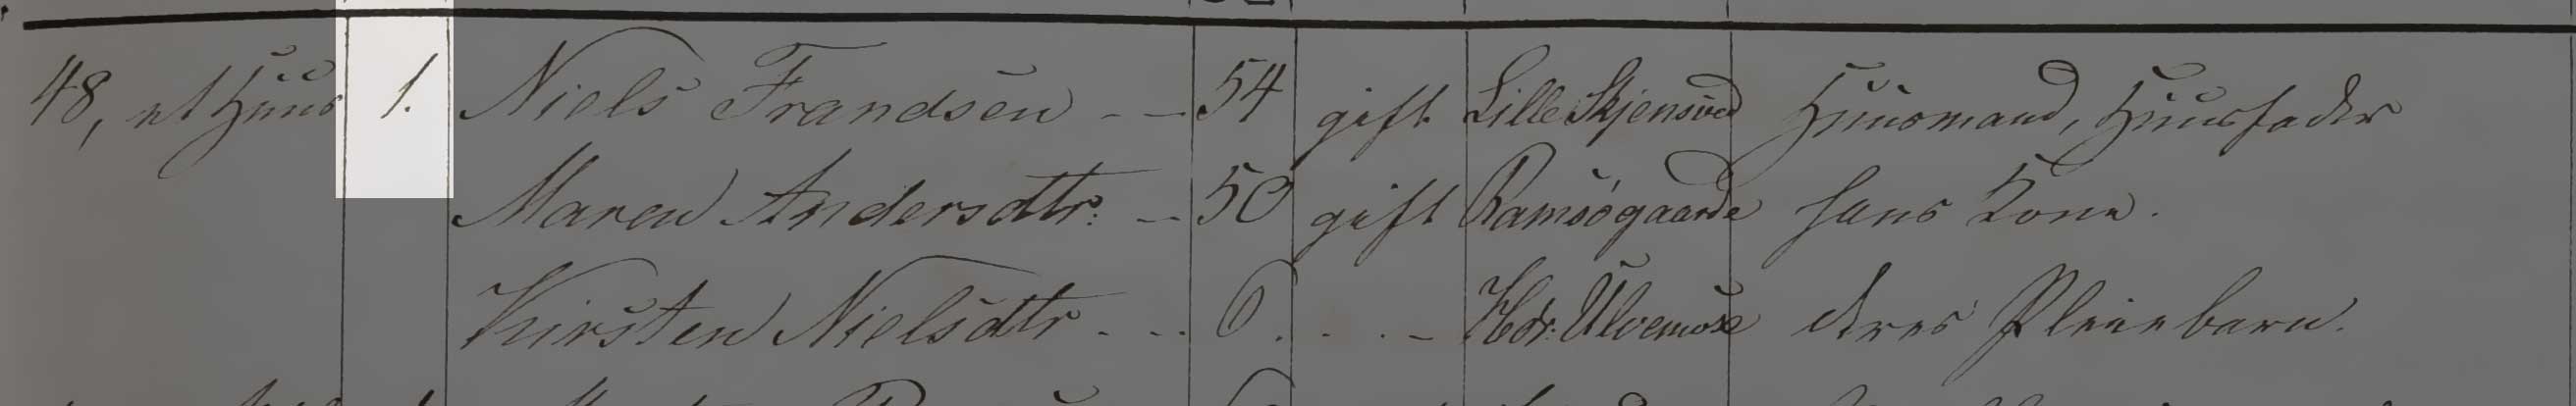 48, et Huus 1. Niels Frandsen - - 54 gift Lille Skjensved Huusmand, Huusfader
Maren Andersdtr. - - 50 gift Ramsøgaarde hans Kone.
Kirsten Nielsdtr - - - 6. . . - Hdr. Ulvemose deres Pleiebarn.